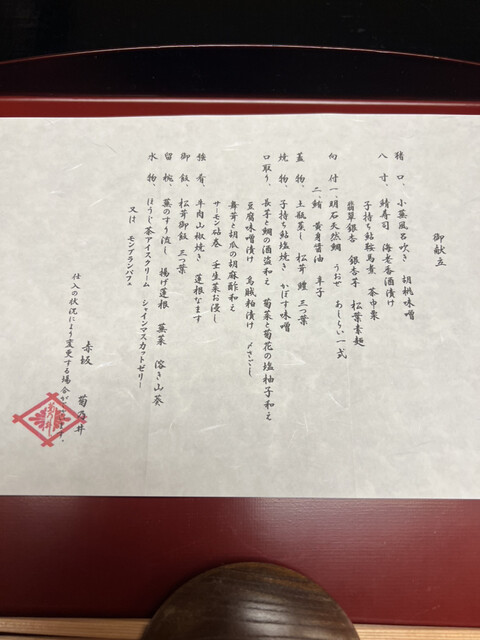 御献立
猪口、小蕪風呂吹き 胡桃味噌
八寸、鯖寿司 海老香酒漬け
子持ち鮎鞍馬煮 茶巾栗
翡翠銀杏 銀杏芋 松葉素麺
向付一、明石天然鯛 うおぜ あしらい一式
二、鮪 黄身醤油 辛子
蓋物、土瓶蒸し 松茸 鱧 三つ葉
焼物、子持ち鮎塩焼き かぼす味噌
口取り、長芋と鯛の酒盗和え 菊菜と菊花の塩柚子和え
豆腐味噌漬け 烏賊粕漬け 〆さごし
舞茸と胡瓜の胡麻酢和え
サーモン砧巻 壬生菜お浸し
強肴、牛肉山椒焼き 蓮根なます
御飯、松茸御飯 三つ葉
留椀、蕪のすり流し 揚げ蓮根 蕪菜 溶き山葵
水物、ほうじ茶アイスクリーム シャインマスカットゼリー
又は モンブランパフェ
仕入の状況により変更する場合がざいます。
赤坂 菊乃井
菊乃井